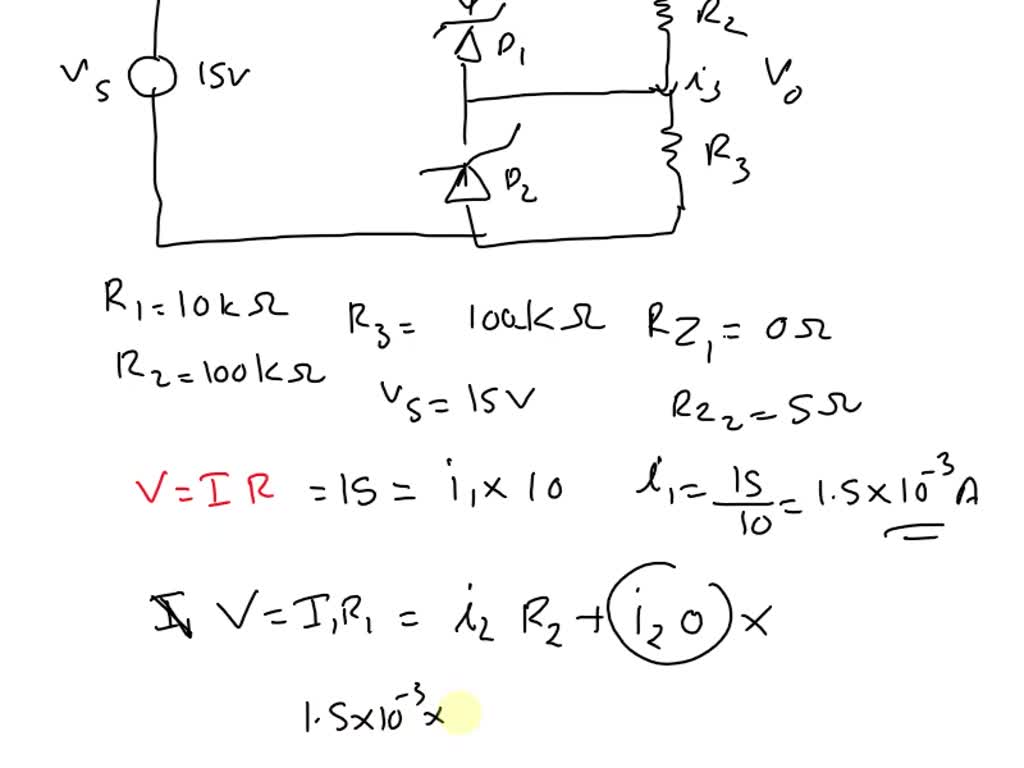 R2
D1
Vs 15V i3 Vo
R3
D2
R1=10kΩ R3= 100kΩ RZ1=0Ω
R2=100kΩ Vs=15V RZ2=5Ω
V=IR =15= i1×10 i1=15/10=1.5×10^-3 A
V=I1R1= i2 R2+(i2 0)×
1.5×10^-3×